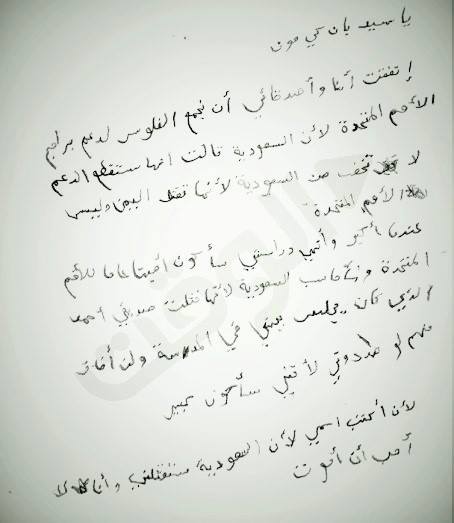 يا سيد بان كي مون
إتفقت أنا وأصدقائي أن نجمع الفلوس لدعم برامج
الأمم المتحدة لأن السعودية قالت انها ستقطع الدعم
لا تخف من السعودية لأنها تقتل اليمن وليس
الأمم المتحدة
عندما أكبر وأنهي دراستي سأكون أمينا عاما للأمم
المتحدة وسأحاسب السعودية لأنها قتلت صديقي أحمد
الذي كان يجلس بجنبي في المدرسة ولن أخاف
منهم لو هددوني لأنني سأكون كبير
لأن أكتب اسمي لأن السعودية ستقتلني وأنا لا
أحب أن أموت